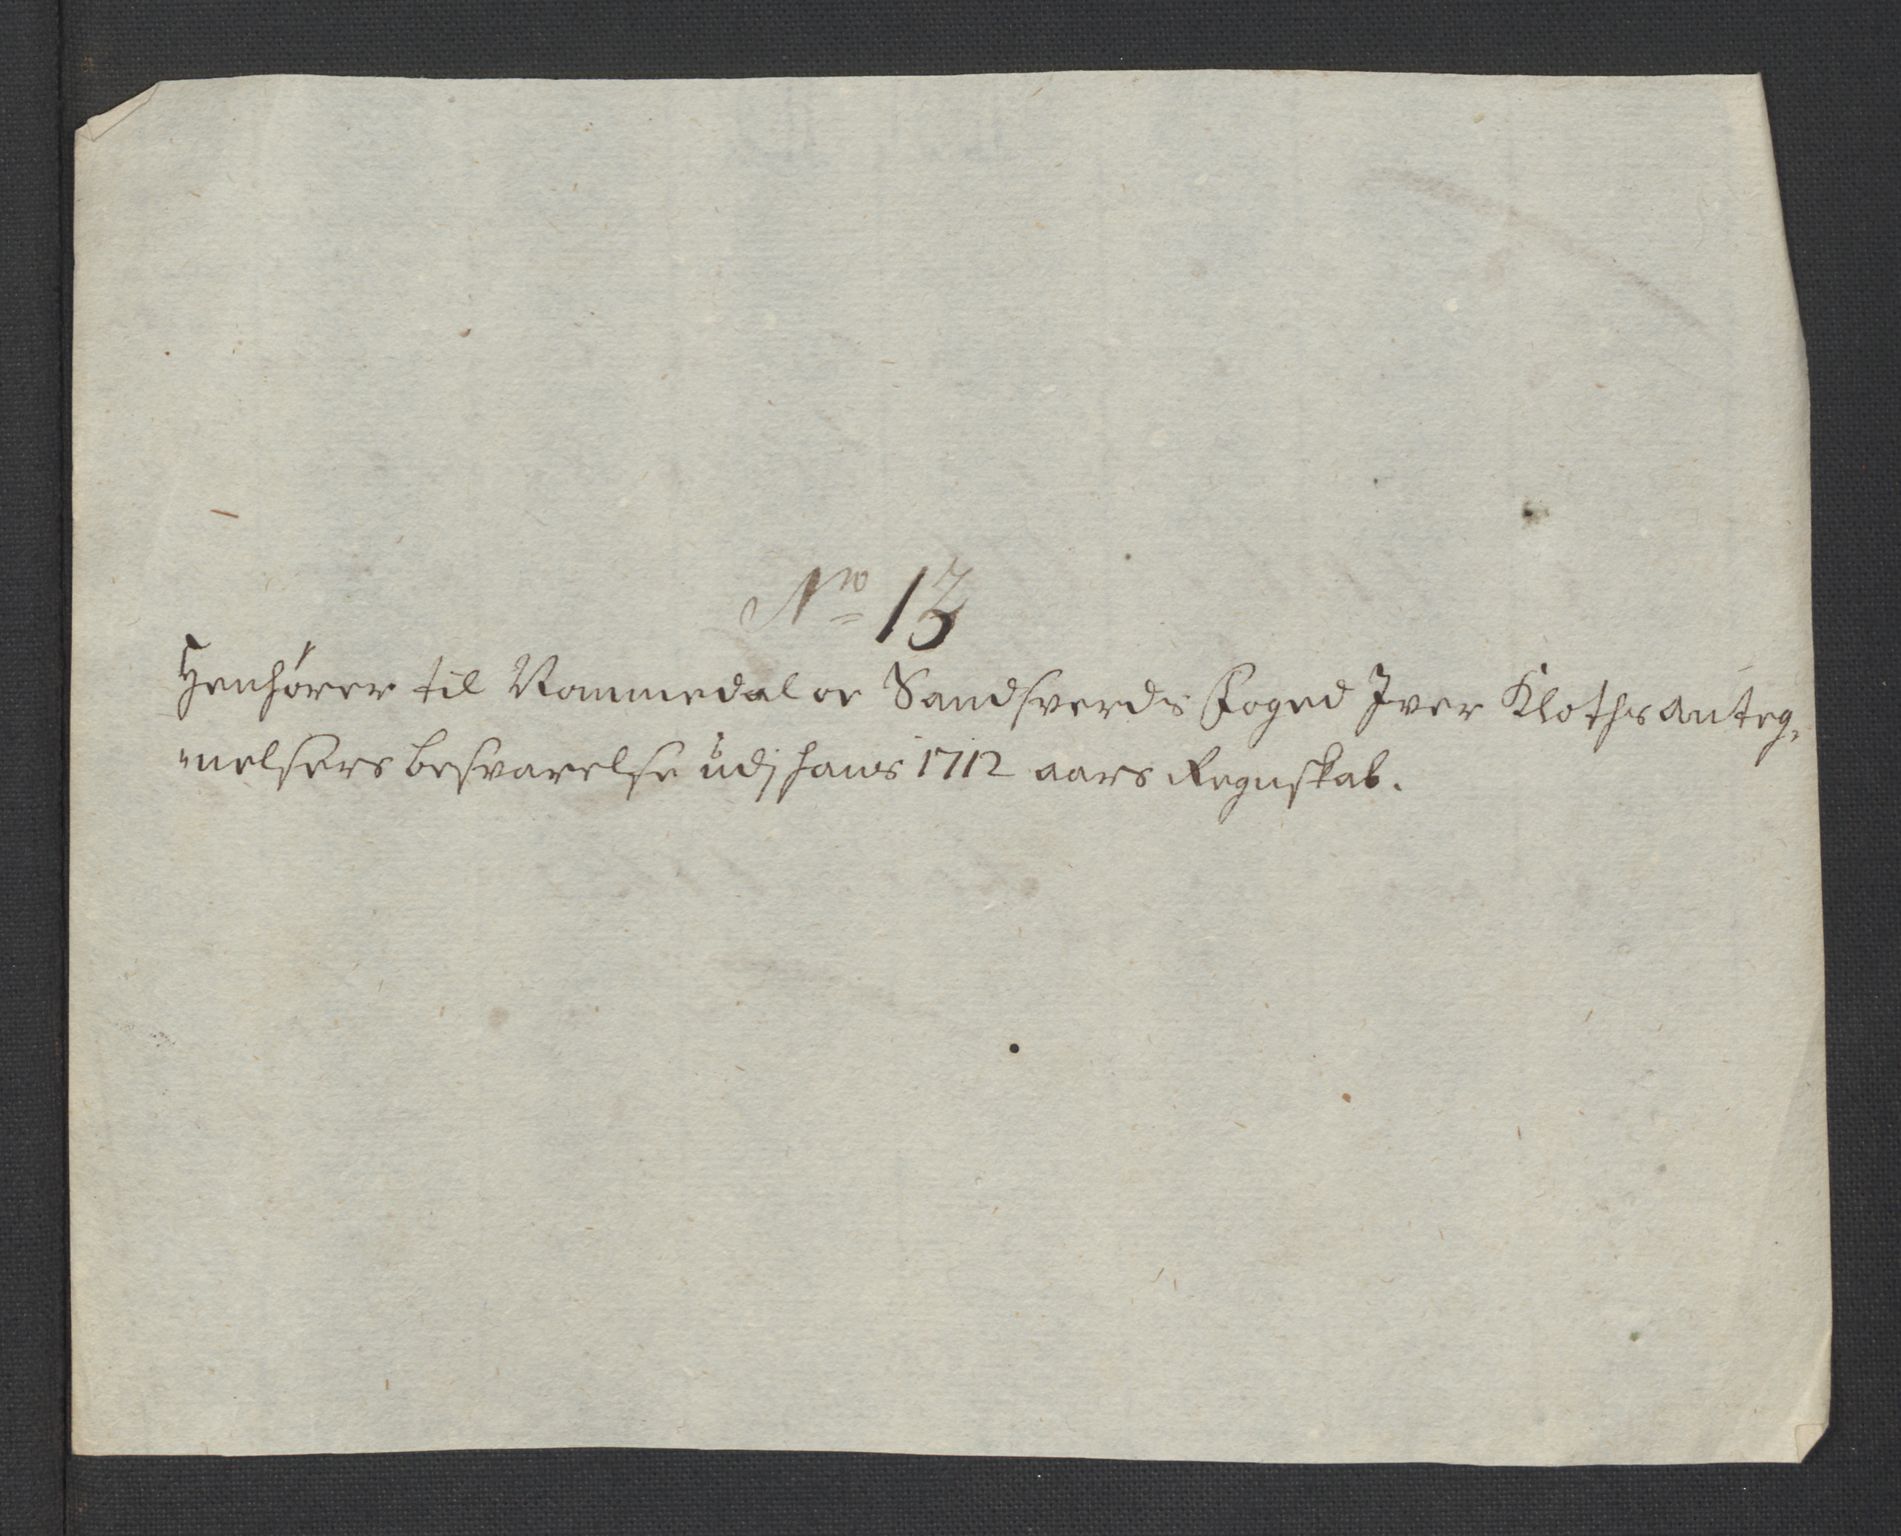 No 13
Henhörer til Nommedal oc Sandsverds Foged Iver Kloths anteg,
nelsers besvarelse udj hans 1712 aars Regnskab.